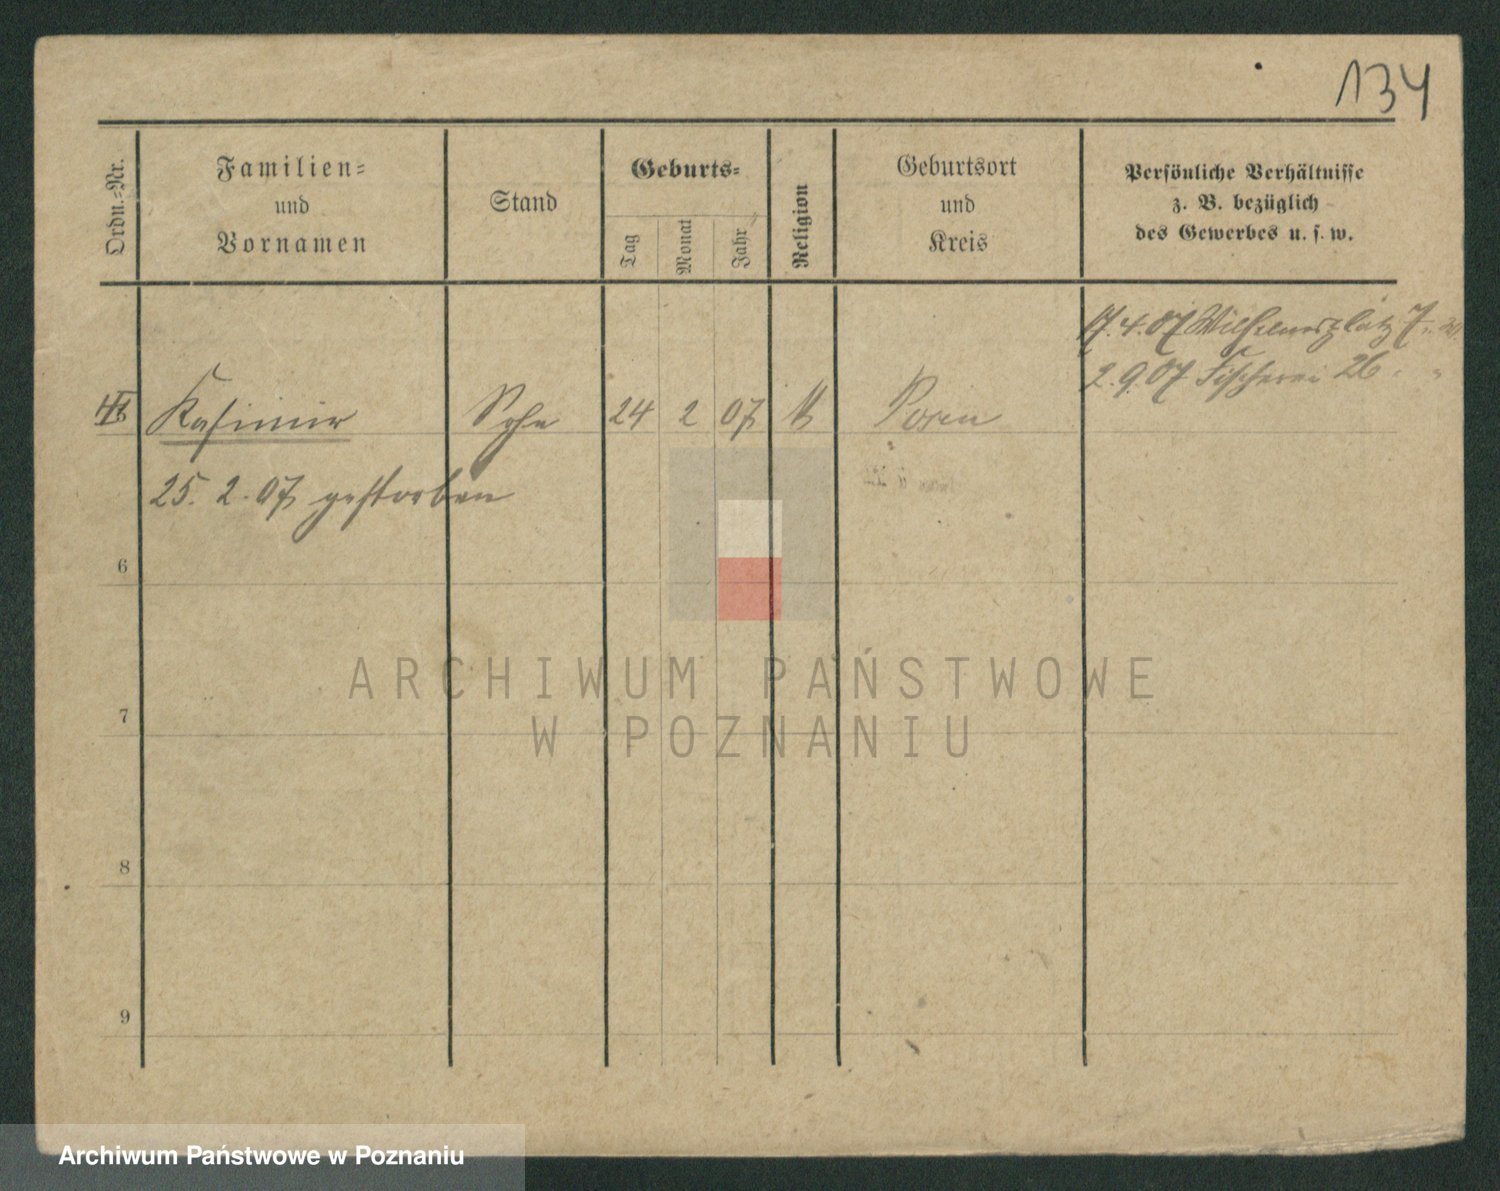 134
Ordn.-Nr.
Familien-
und
Vornamen
Stand
Geburts-
Tag
Monat
Jahr
Religion
Geburtsort
und
Kreis
Persönliche Verhältnisse
z. B. bezüglich
des Gewerbes u. s. w.
17.4.07 Wilhelmsplatz 7
2.9.07 Fischerei 26
Kasimir Sohn 24 2 07 Posen
25. 2. 07 gestorben
6
7
8
9
ARCHIWUM PAŃSTWOWE
W POZNANIU
Archiwum Państwowe w Poznaniu